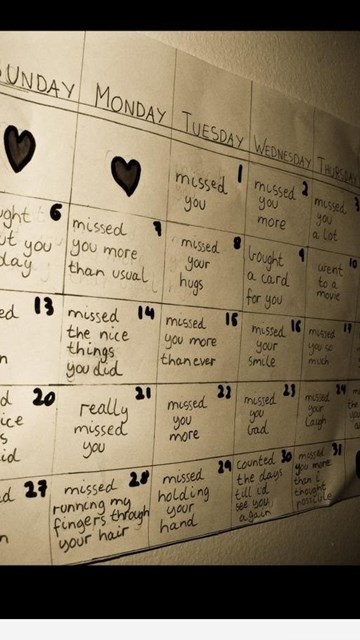 SUNDAY MONDAY TUESDAY WEDNESDAY THURSDAY
1
missed
you
2
missed
you
more
3
missed
you
a lot
6
ught
ut you
day
7
missed
you more
than usual
8
missed
your
hugs
9
bought
a card
for you
10
went
to a
movie
13
ed
n
14
missed
the nice
things
you did
15
missed
you more
than ever
16
missed
your
smile
17
missed
you so
much
20
d
ice
s
id
21
really
missed
you
22
missed
you
more
23
missed
you
bad
24
missed
your
laugh
27
ed
n
28
missed
running my
fingers through
your hair
29
missed
holding
your
hand
30
counted
the days
till i'd
see you
again
31
missed
you more
than i
thought
possible